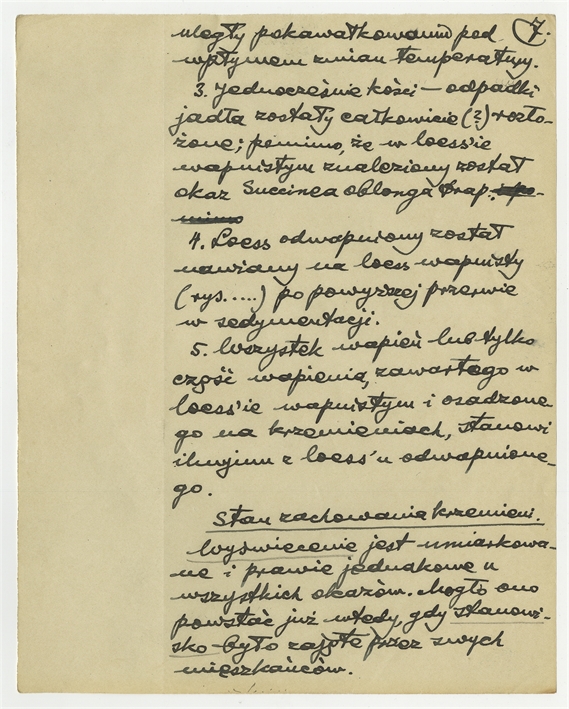 7.
uległy pokawałkowaniu pod
wpływem zmian temperatury.
3. Jednocześnie kości — odpadki
jadła zostały całkowicie (?) rozło-
żone; pomimo, że w loess'ie
wapnistym znaleziony został
okaz Succinea oblonga Drap.
4. Loess odwapniony został
nawiany na loess wapnisty
(rys.....) po powyższej przerwie
w sedymentacji.
5. Wszystek wapień lub tylko
część wapienia, zawartego w
loess'ie wapnistym i osadzone-
go na krzemieniach, stanowi
iluvium z loess'u odwapnione-
go.
Stan zachowania krzemieni.
Wyświecenie jest umiarkowa-
ne i prawie jednakowe u
wszystkich okazów. Mogło ono
powstać już wtedy, gdy stanowi-
sko było zajęte przez swych
mieszkańców.